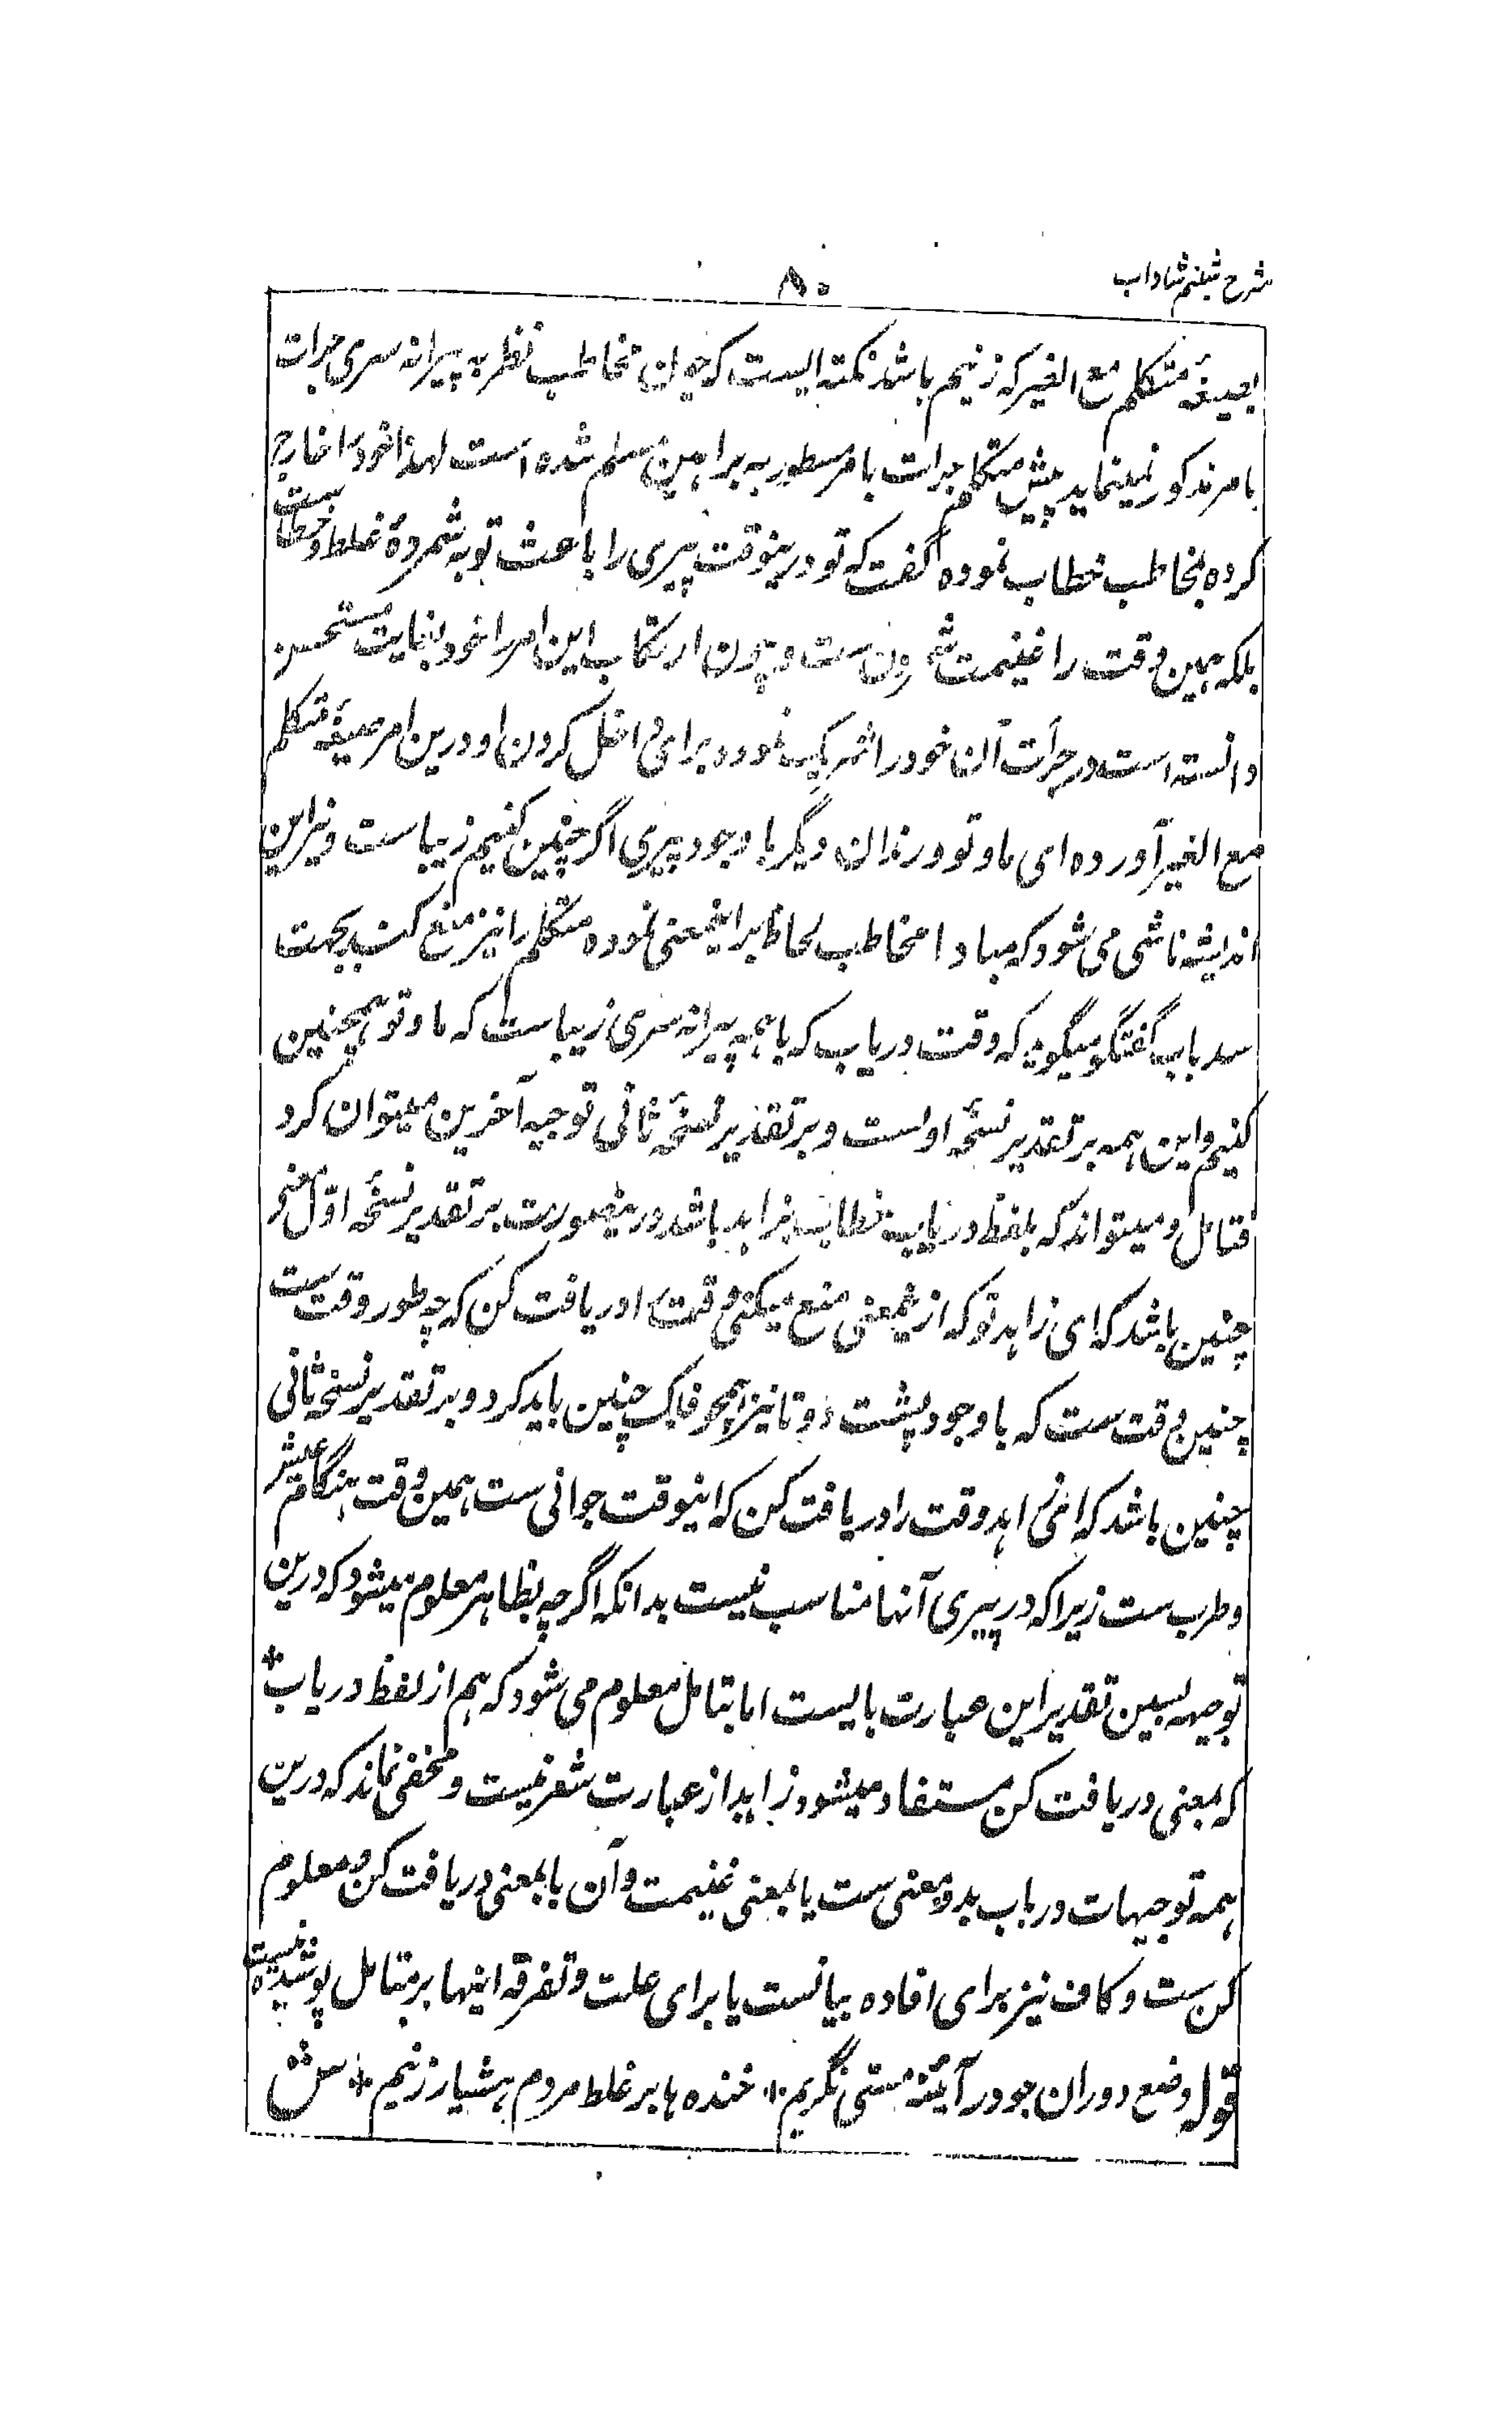 شرح شبنم شاداب
۸۰
بصیغهٔ متکلم مع الغیر که زنیم باشد نکته الیست که چون مخاطب نظر به پیرانه سری جرات
بامر مذکور نمینماید پیش متکلم جرات بامر مسطور به براهین مسلم شده است لهذا خود را خارج
کرده بمخاطب خطاب نموده گفت که تو درینوقت پیری را باعث توبه شمردهٔ غلط و خطاست
بلکه همین وقت را غنیمت شمردن ست و چون ارتکاب این امر را خود بغایت مستحسن
دانسته است در جرأت آن خود را شریک نموده برای داخل کردن او درین امر صیغهٔ متکلم
مع الغیر آورده ای ما و تو و رندان دیگر با وجود پیری اگر چنین کنیم زیباست و نیز این
اندیشه ناشی می شود که مبادا مخاطب لحاظ بر اینمعنی نموده متکلم را نیز منع کند بجهت
سد باب گفتگو میگوید که وقت دریاب که با همه پیرانه سری زیباست که ما و تو همچنین
کنیم و این همه بر تقدیر نسخهٔ اولست و بر تقدیر نسخهٔ ثانی توجیه آخرین میتوان کرد
فتامل و میتواند که بلفظ دریاب خطاب بزاهد باشد درینصورت بر تقدیر نسخهٔ اوّل معنی
چنین باشد که ای زاهد تو که ازینمعنی منع میکنی وقت را دریافت کن که چه طور وقت ست
چنین وقت ست که با وجود پشت دوتا نیز همچو فلک چنین باید کرد و بر تقدیر نسخهٔ ثانی
چنین باشد که ای زاهد وقت را دریافت کن که اینوقت جوانی ست همین وقت هنگام عیش
و طرب ست زیرا که در پیری آنها مناسب نیست بدانکه اگرچه بظاهر معلوم میشود که درین
توجیهه بسین تقدیر این عبارت بالیست اما بتامل معلوم می شود که هم از لفظ دریاب *
که معنی دریافت کن مستفاد میشود زاید از عبارت شعر نیست و مخفی نماند که درین
همه توجیهات درباب بدو معنی ست یا بمعنی غنیمت و آن یا بمعنی دریافت کن و معلوم
کن ست و کاف نیز برای افاده بیانست یا برای علت و تفرقه اینها بر متامل پوشیده نیست
قوله وضع دوران چو در آیئنهٔ مستی نگریم * خنده ها بر غلط مردم هشیار زنیم * ش